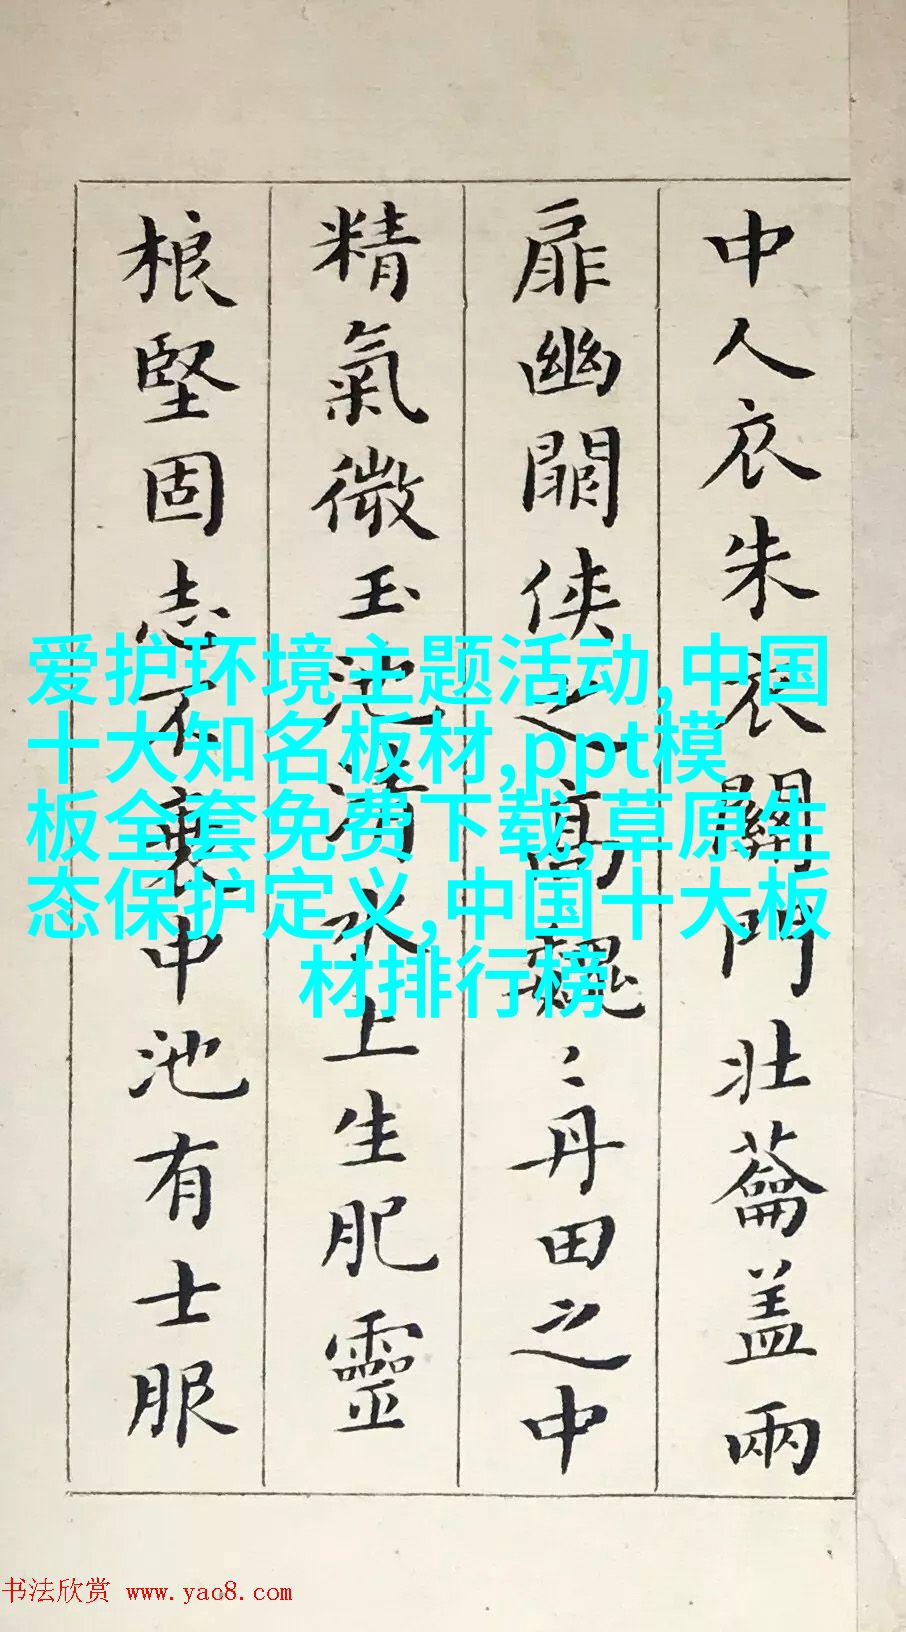 中人衣朱衣關門壯蘥盖兩
扉幽闗俠之高巍〻丹田之中
精氣微玉池清水上生肥靈
根堅固志不衰中池有士服
爱护环境主题活动,中国
十大知名板材,ppt模
板全套免费下载,草原生
态保护定义,中国十大板
材排行榜
书法欣赏 www.yac8.com